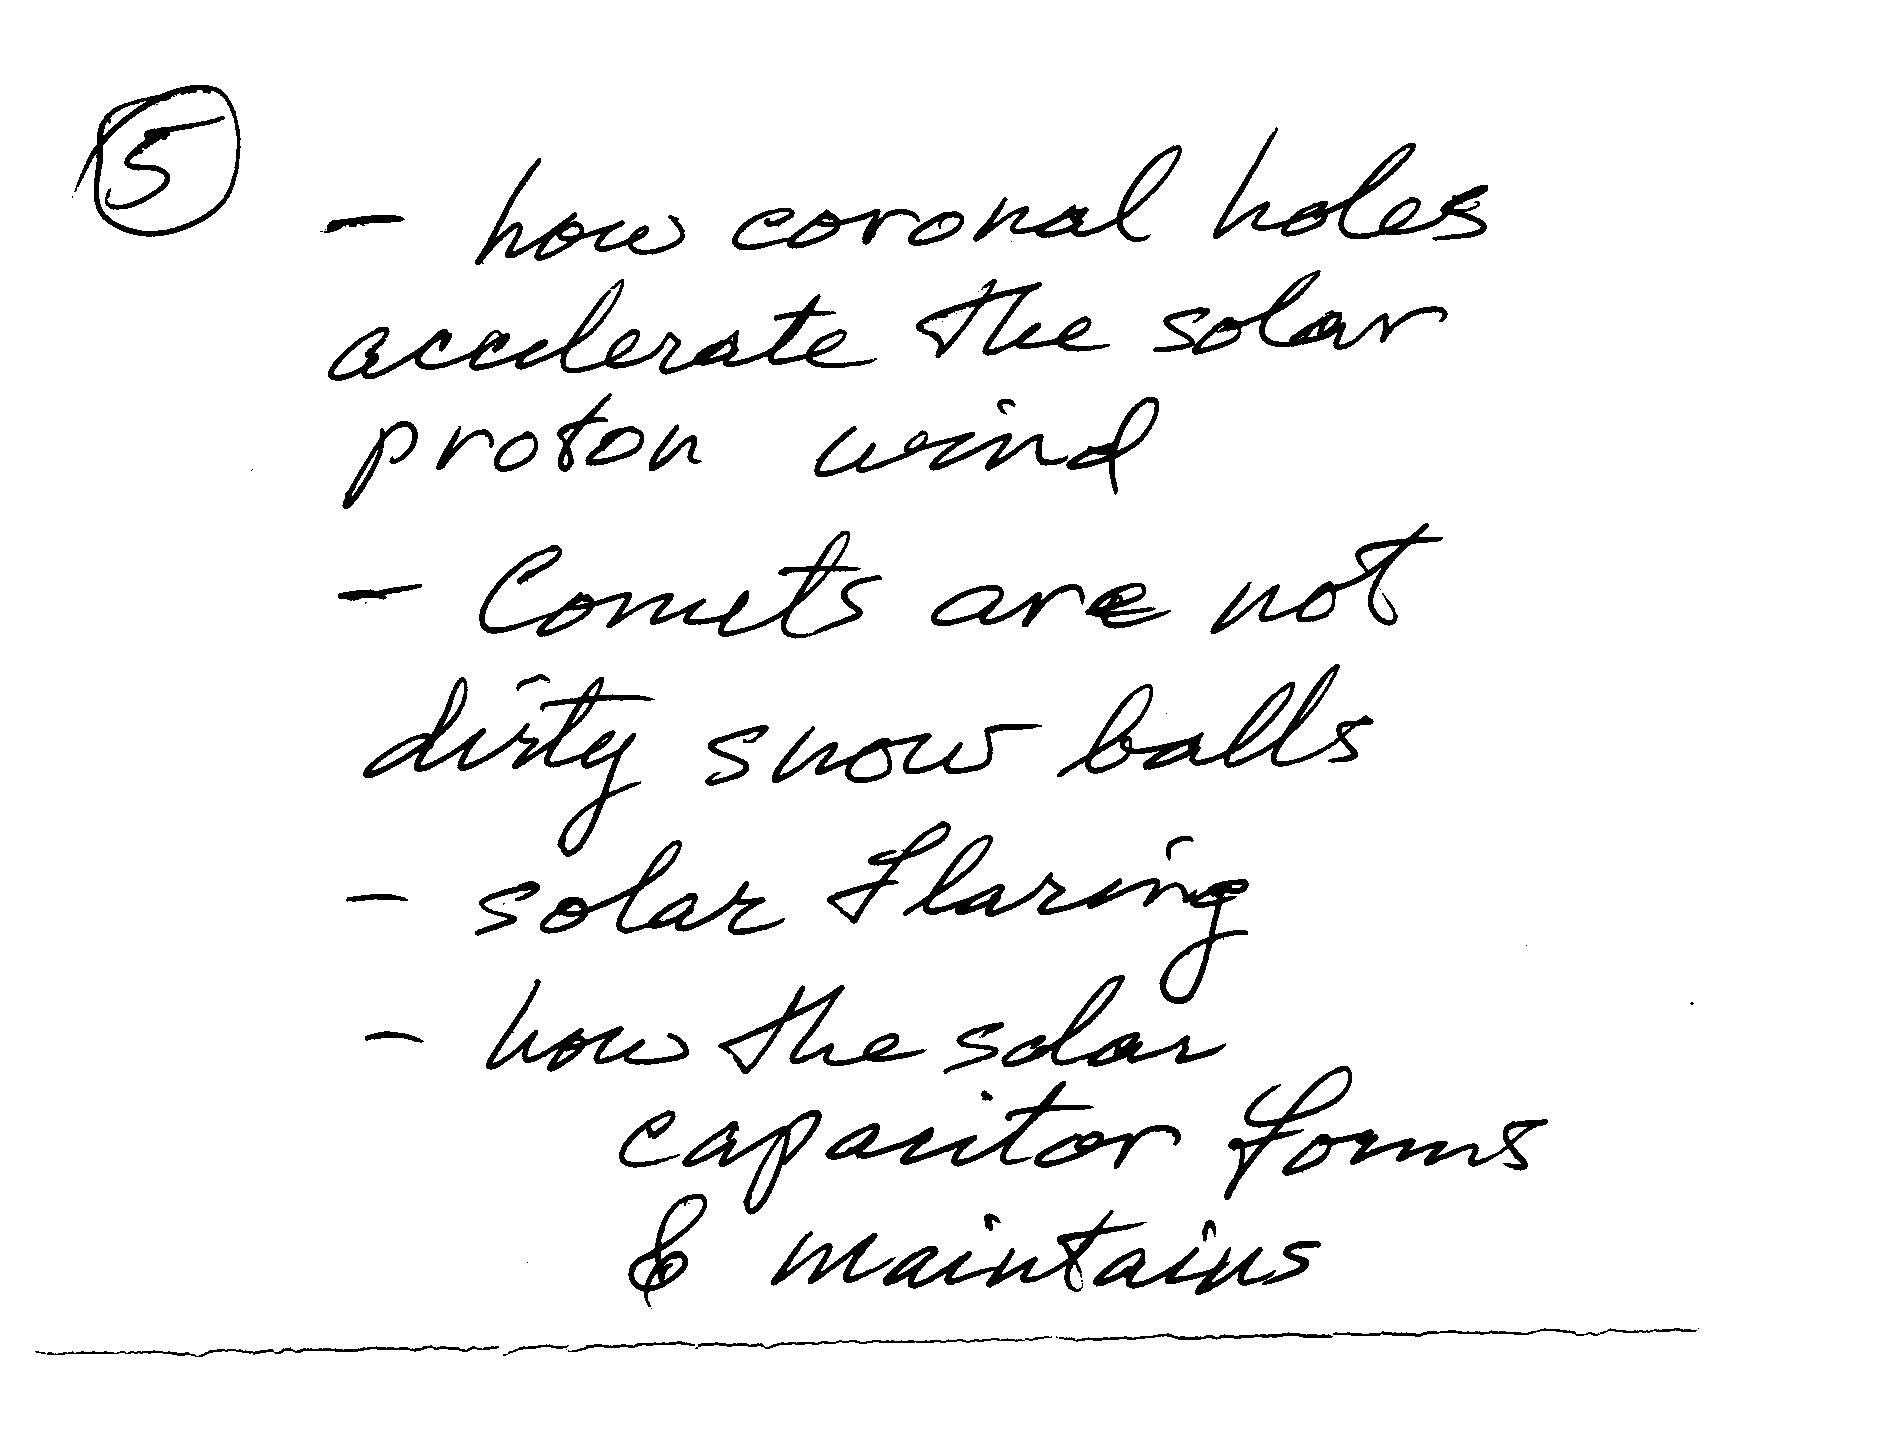 5
- how coronal holes
accelerate the solar
proton wind
- Comets are not
dirty snow balls
- solar flaring
- how the solar
capacitor forms
& maintains